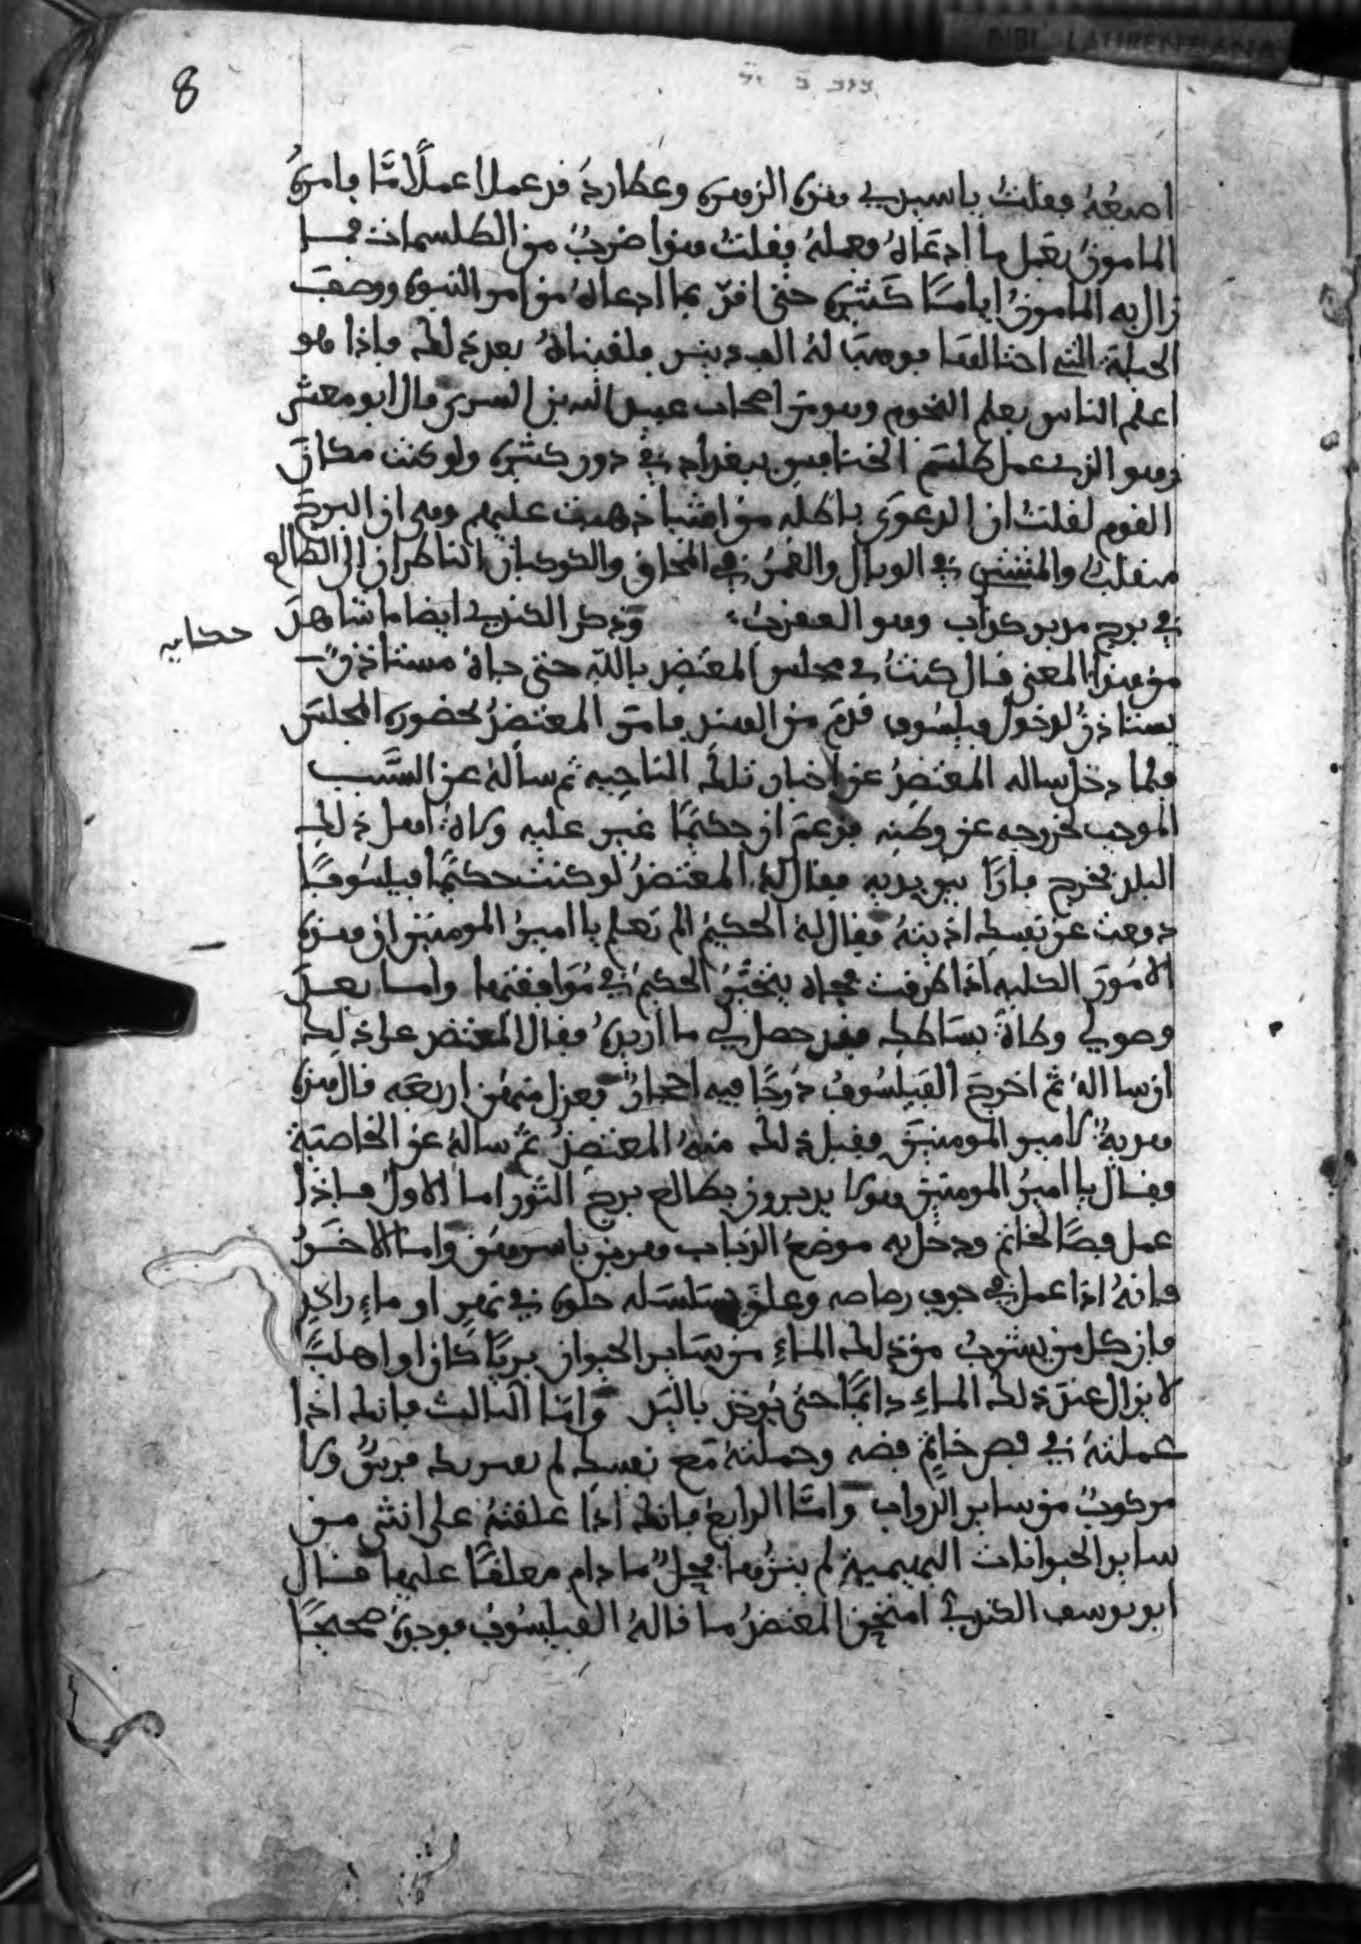 8
BIBL. LAURENZIANA
اصبغه فقلت يا سيدي هذه الزهرة وعطارد قد عملا عملا ما فامره
المامون بعمل ما ادعاه فعمله فقلت هذا ضرب من الطلسمات فما
زال به المامون اياما كثيرة حتى اقر بما ادعاه من امر النبوة ووصف
الحيلة التي احتالها فوهب له الف دينر فلقيناه بعد ذلك فاذا هو
اعلم الناس بعلم النجوم وهو من اصحاب عبيد الله بن السري قال ابو معشر
وهو الذي عمل طلسم الخنافس ببغداد في دور كثيرة ولو كنت مكان
القوم لقلت ان الدعوى باطلة من اشيا ذهبت عليهم وهي ان البرج
منقلب والمشتري في الوبال والقمر في المحاق والكوكبان الناظران الى الطالع
في برج مزور كذاب وهو العقرب وذكر الكندي ايضا ما شاهد
حكاية
من هذا المعنى قال كنت في مجلس المعتضد بالله حتى جاه مستاذن
يستاذن لدخول فيلسوف قدم من الهند فامر المعتضد بحضوره المجلس
فلما دخل ساله المعتضد عن اخبار تلك الناحيه ثم ساله عن السبب
الموجب لخروجه عن وطنه فزعم ان حكيما غير عليه ولاة اهل ذلك
البلد فخرج فارا بين يديه فقال له المعتضد لو كنت حكيما فيلسوفا
دفعت عن نفسك اذيته فقال له الحكيم الم تعلم يا امير المومنين ان هذه
الامور الكليه اذا طرقت فجاه يتحير الحكيم في موافقتها واما بعد
وصولي وطاة بساطك فقد حصل لي ما اريده فقال المعتضد على ذلك
ان ساله ثم اخرج الفيلسوف درجا فيه احجار فعزل منهن اربعه قال هذه
هدية لامير المومنين فقبل ذلك منه المعتضد ثم ساله عن الخاصية
فقال يا امير المومنين هولا يدبرون بطالع برج الثور اما الاول فاذا
عمل فصا لخاتم ودخل به موضع الذباب هربن باسرهن واما الاخر
فانه اذا عمل في جوف رصاصه وعلق بسلسله حلوة في نهر او ماء راكد
فان كل من يشرب من ذلك الماء من ساير الحيوان بريا كان او اهليا
لا يزال عند ذلك الماء دائما حتى يوخذ باليد واما الثالث فانك اذا
عملته في فص خاتم فضه وحملته مع نفسك لم يعبر بك فرس ولا
مركوب من ساير الدواب واما الرابع فانك اذا علقته على انثى من
ساير الحيوانات البهيمية لم ينزها فحل ما دام معلقا عليها قال
ابو يوسف الكندي امتحن المعتضد ما قاله الفيلسوف فوجده صحيحا